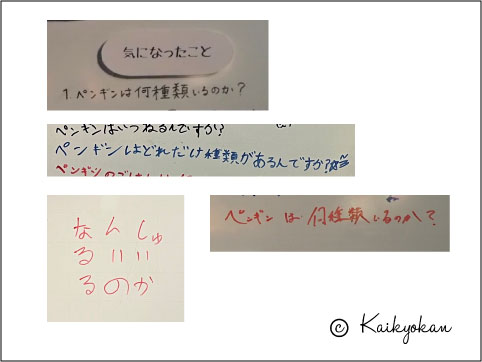 気になったこと
1.ペンギンは何種類いるのか?
ペンギンはいつねるんですか?
ペンギンはどれだけ種類があるんですか?
ペンギンのごはんは
なんしゅ
るいい
るのか
ペンギンは何種類いるのか?
© Kaikyokan